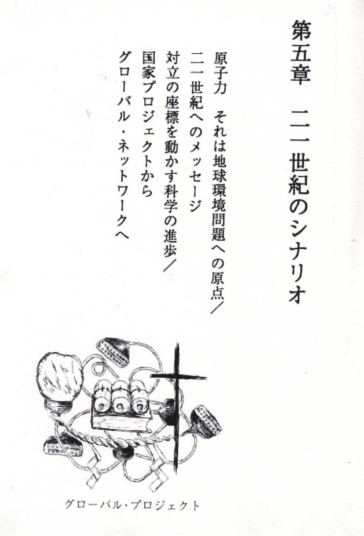 第五章　二一世紀のシナリオ
原子力　それは地球環境問題への原点／
二一世紀へのメッセージ
対立の座標を動かす科学の進歩／
国家プロジェクトから
グローバル・ネットワークへ
グローバル・プロジェクト